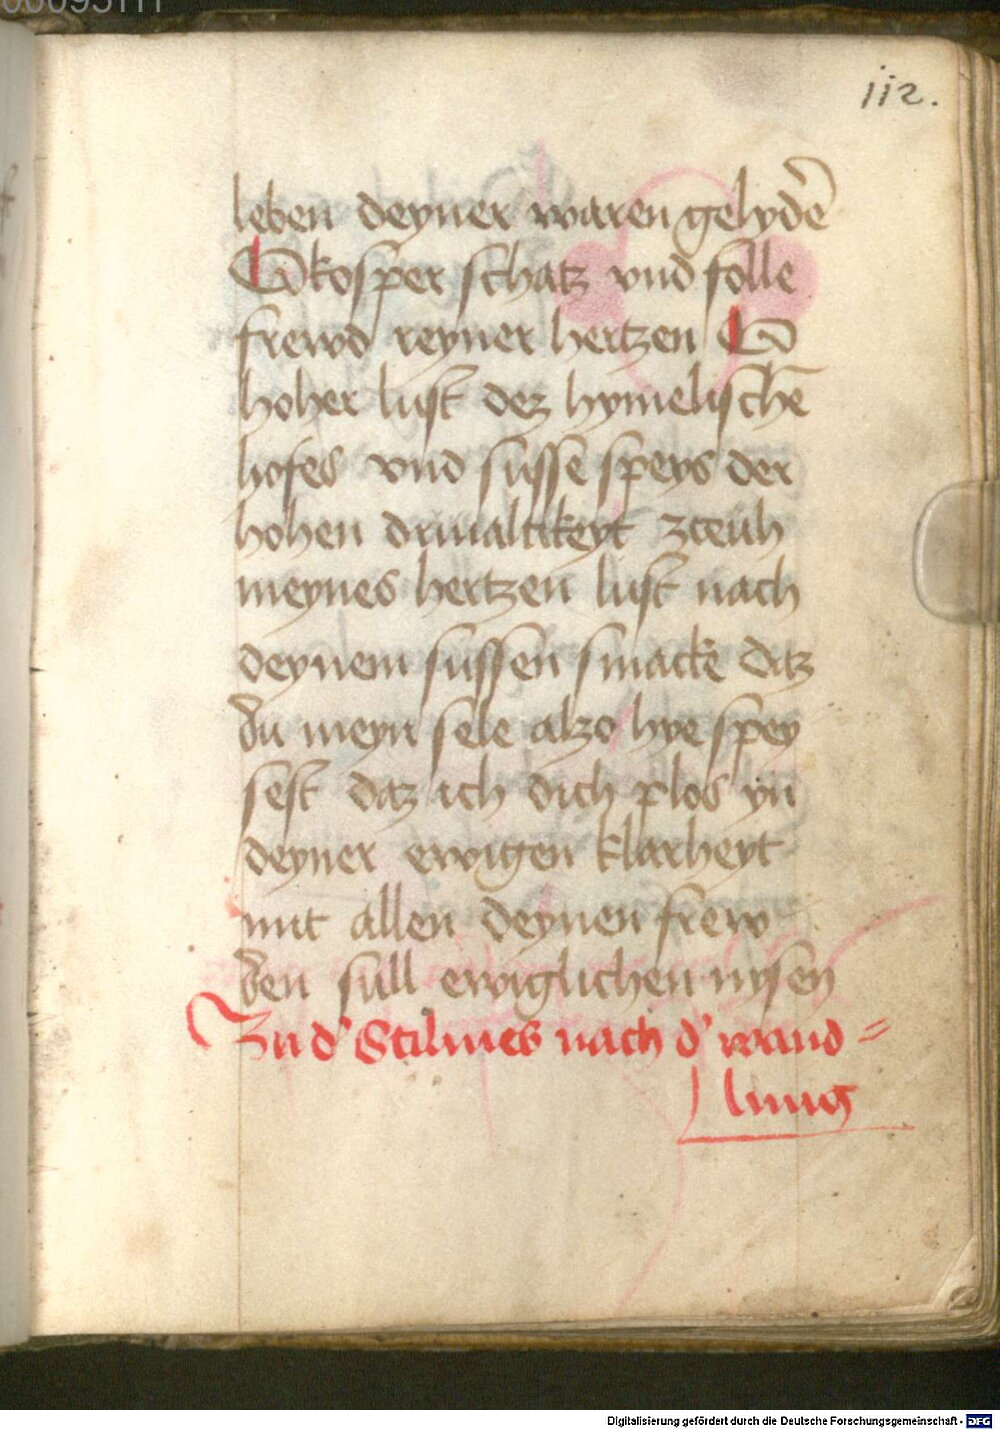 112.
leben deyner waren gelyd'ē
O kosper schatz vnd folle
frewd reyner hertzen O
hoher lust dez hymelischē
hofes vnd susse speys der
hohen driualtikeyt zceuh
meynes hertzen lust nach
deynem sussen smacke daz
du meyn sele alzo hye spey
sest daz ich dich plos yn
deyner ewigen klarheyt
mit allen deynen frew
den sull ewiglichen nysen
Zu d' Stilmes nach d' wand=
lung
Digitalisierung gefördert durch die Deutsche Forschungsgemeinschaft - DFG